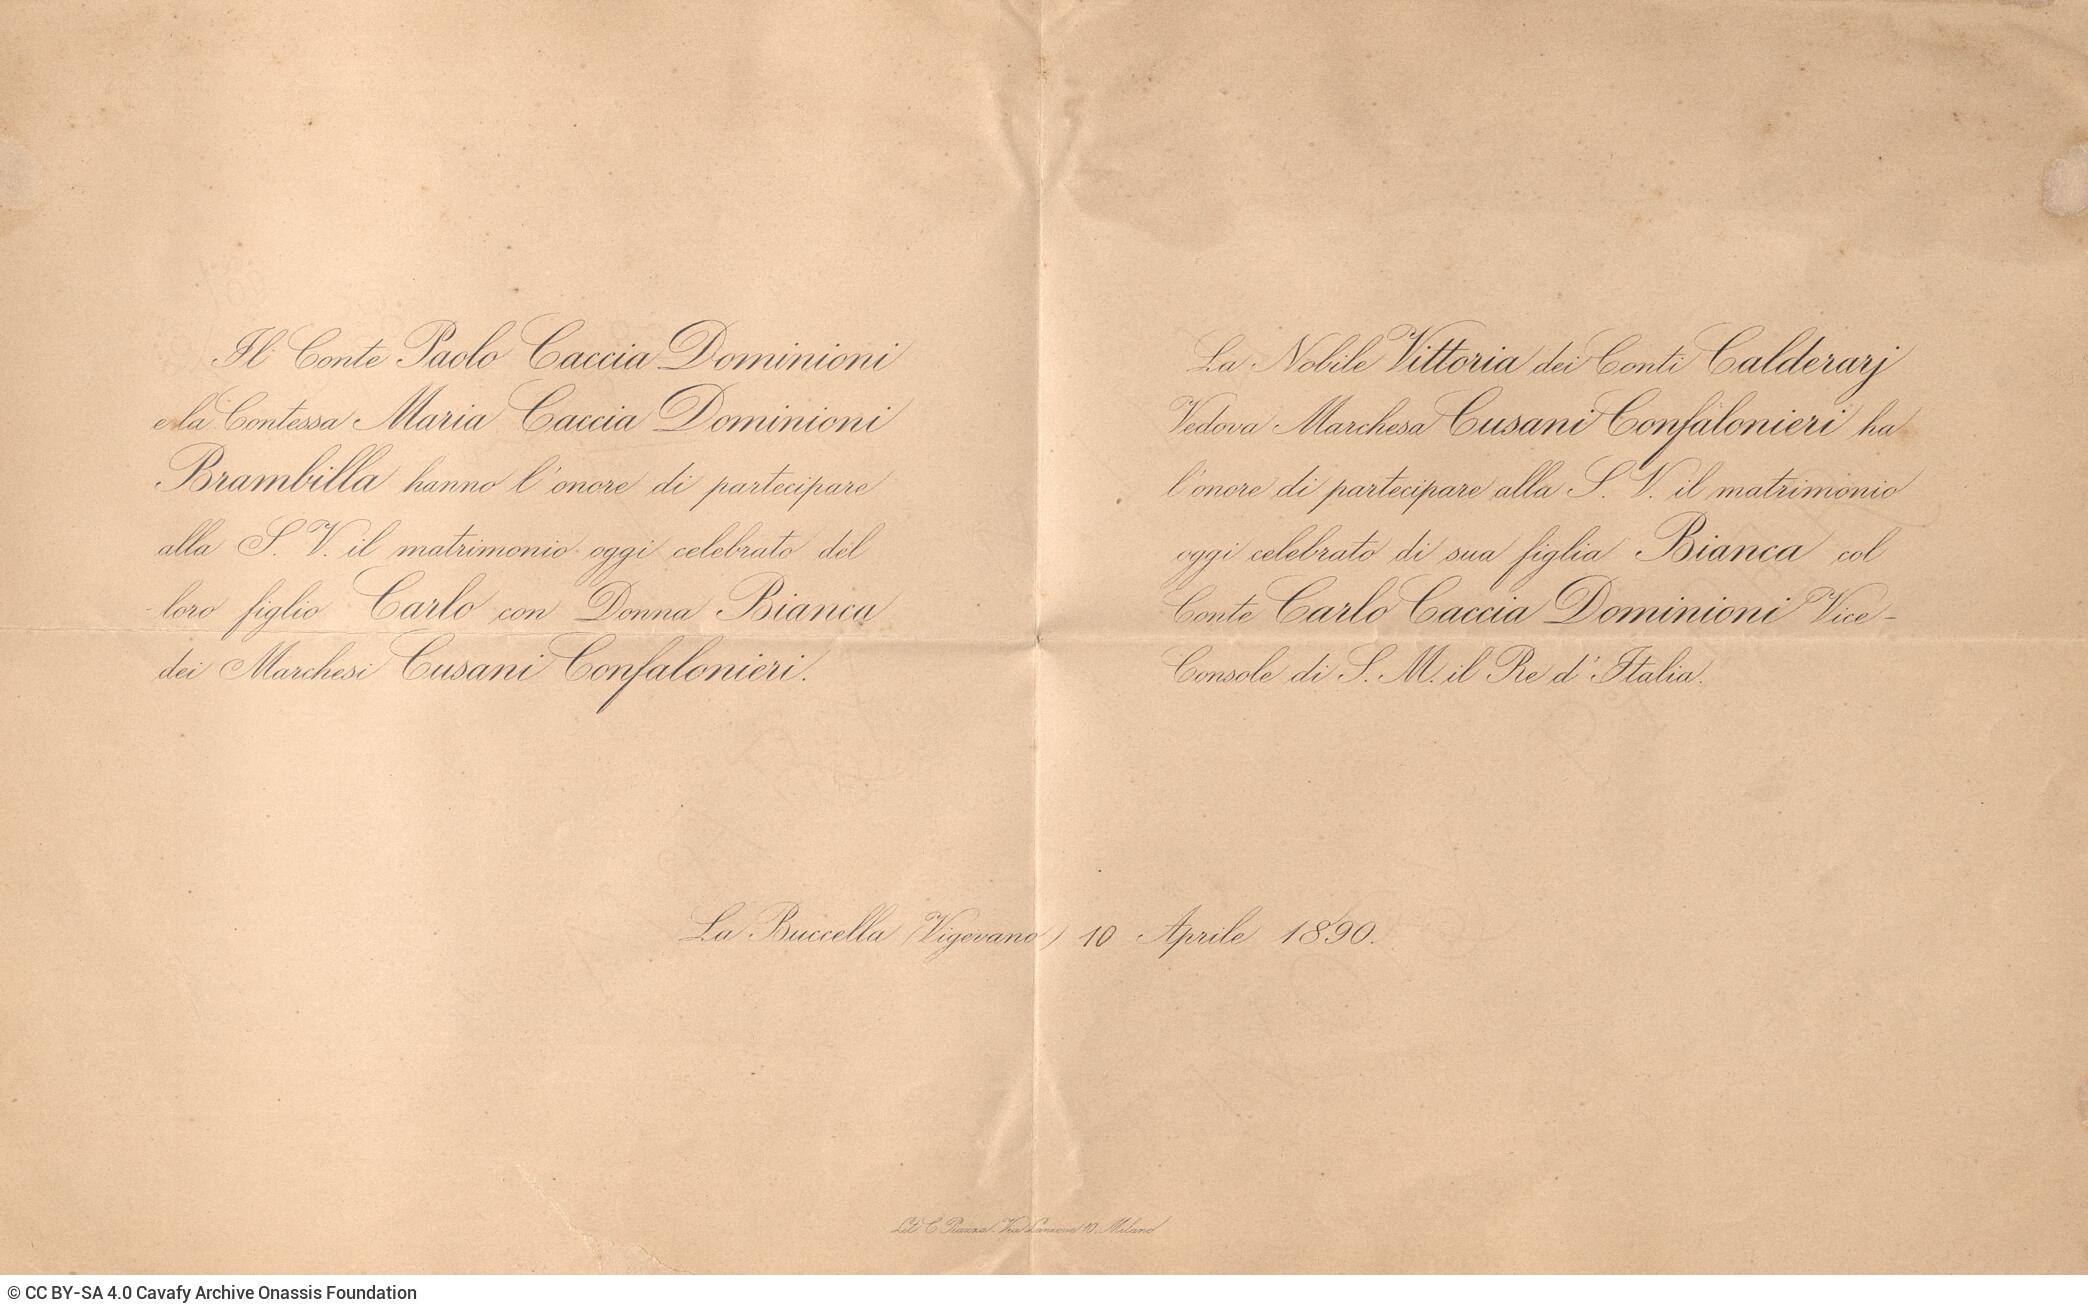 Il Conte Paolo Caccia Dominioni
e la Contessa Maria Caccia Dominioni
Brambilla hanno l'onore di partecipare
alla S. V. il matrimonio oggi celebrato del
loro figlio Carlo con Donna Bianca
dei Marchesi Cusani Confalonieri.
La Nobile Vittoria dei Conti Calderarj
Vedova Marchesa Cusani Confalonieri ha
l'onore di partecipare alla S. V. il matrimonio
oggi celebrato di sua figlia Bianca col
Conte Carlo Caccia Dominioni Vice-
Console di S. M. il Re d'Italia.
La Buccella (Vigevano) 10 Aprile 1890.
Lit. C. Via Lanzone 10, Milano
© CC BY-SA 4.0 Cavafy Archive Onassis Foundation